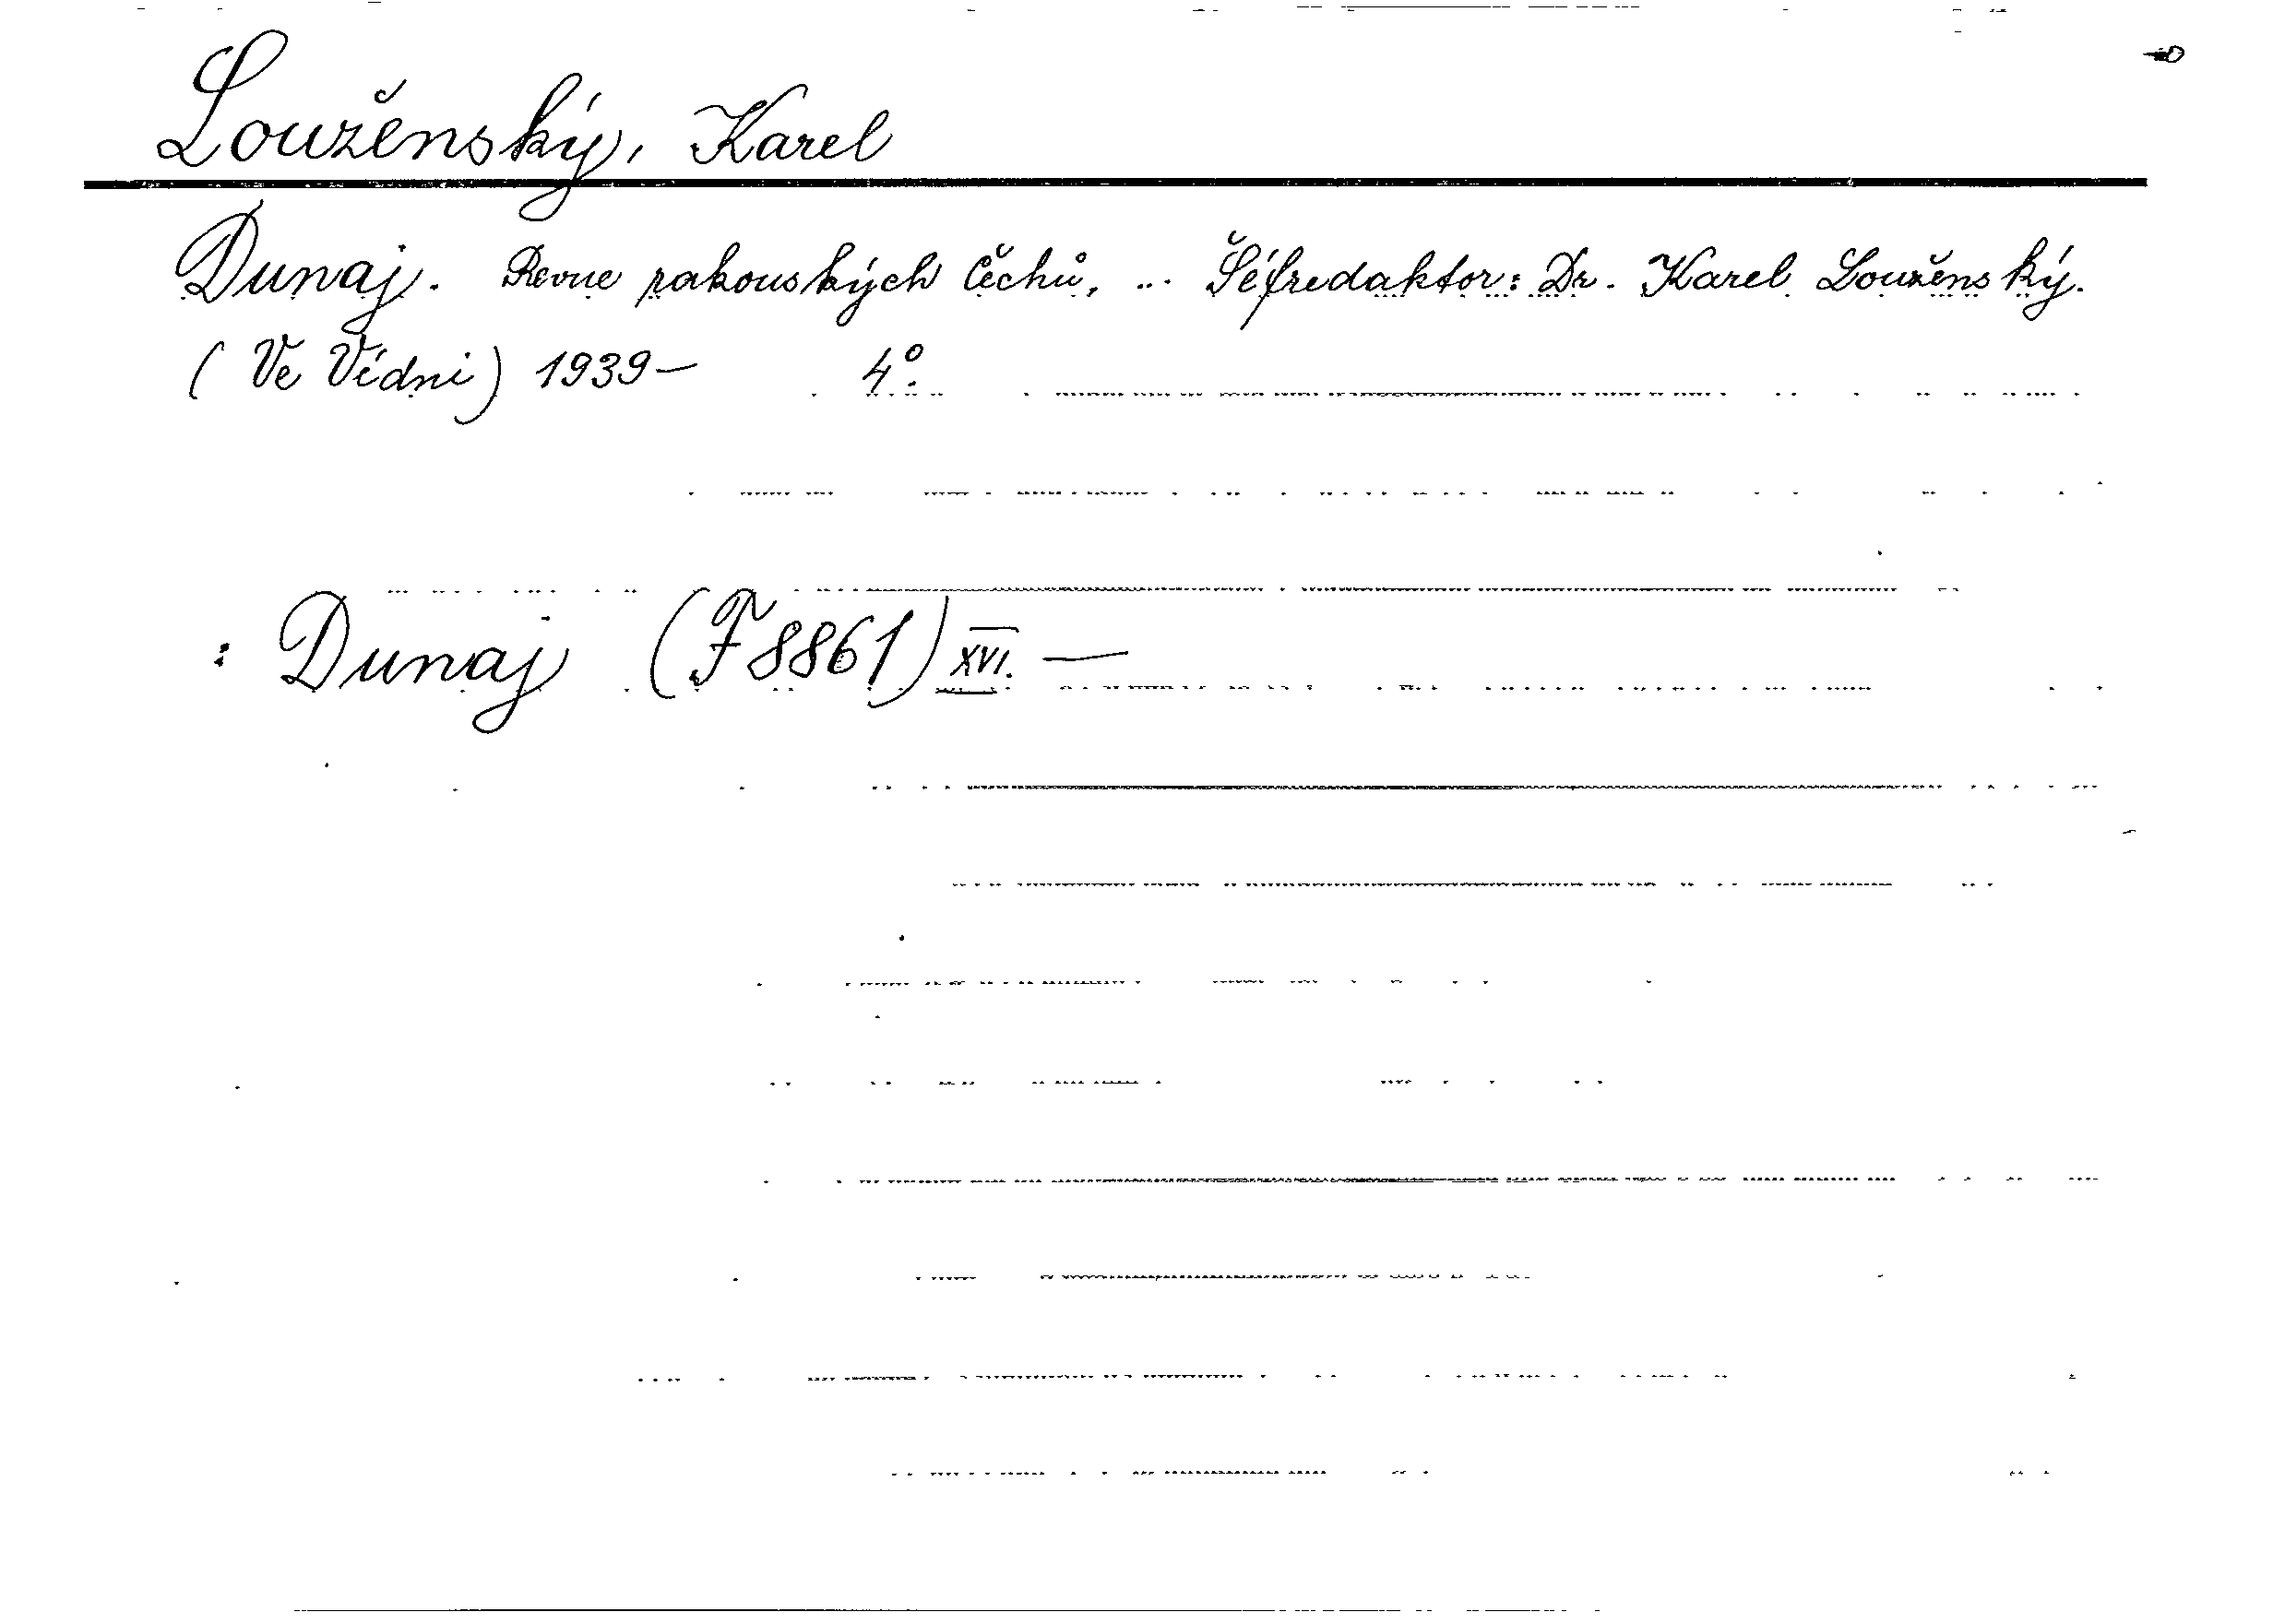 Louženský, Karel
Dunaj. Revue rakouských Čechů, ... Šéfredaktor: Dr. Karel Louženský.
(Ve Vídni) 1939— 4°.
: Dunaj (F 8861) XVI. —